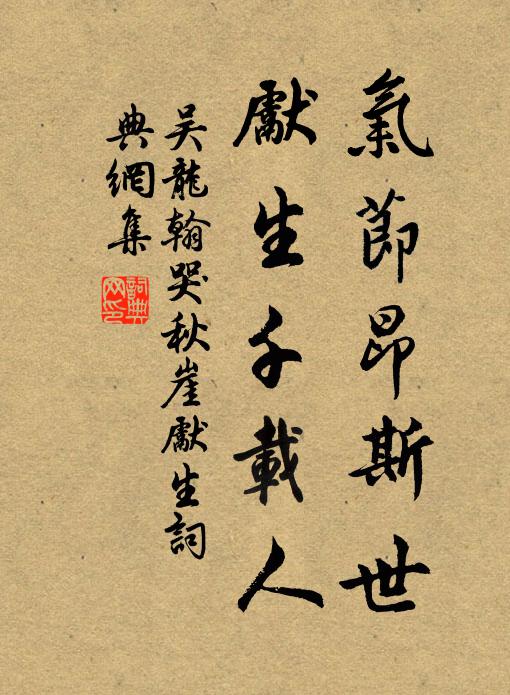 氣節昂斯世
獻生千載人
吳龍翰哭秋崖獻生詞
典網集
詞典
网印